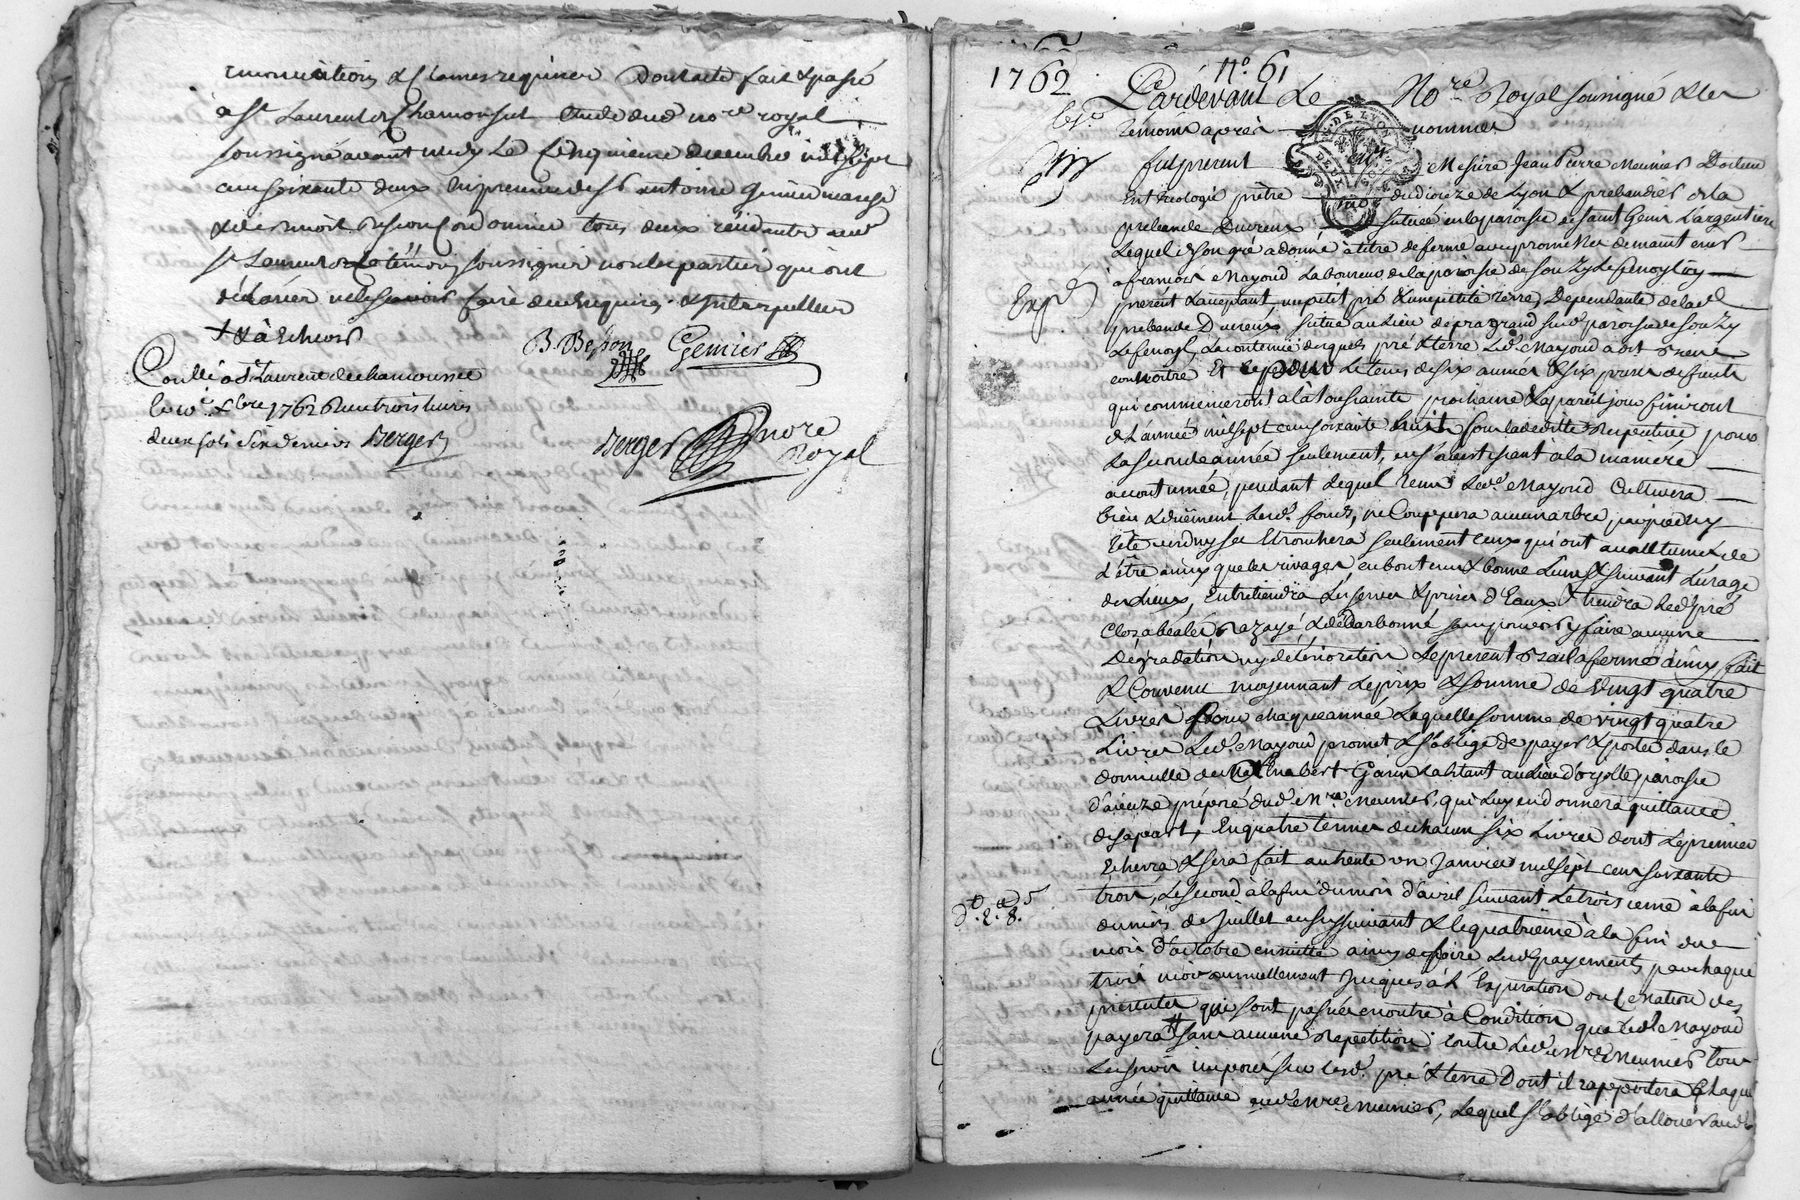 renonciations & clauses requises Dont acte fait & passé
à St Laurent de Chamousset Etude dud. no.re royal
soussigné avant midy Le cinquieme decembre mil sept
cens soixante deux En presence de Sr antoine Genier
& de Benoit Besson Cordonnier tous deux résidants aud.
St Laurent témoins soussignés non les parties qui ont
déclarées ne le sçavoir faire de ce Enquises & Interpellées
B. Besson Genier
Conllé à St Laurent de chamousset
le 10e Xbre 1762 Reçu trois livres
deux sols six deniers Berger
Berger nore
Royal
1762 No. 61
Pardevant Le No.re Royal soussigné & les
témoins après nommés
fut présent Messire Jean Pierre Meunier Docteur
en théologie prêtre du dioceze de Lyon & prebandier de la
prebande Duvreux située en la paroisse de saint Genis L'argentiere
Lequel de son gré a donné à titre de ferme avec promesse de maintenir
à francois Mayoud Laboureur de la paroisse de Souzy Le fenoyl icy
present & acceptant, un petit pré & une petite terre, Dependants de lad.
prebande Duvreux située au Lieu de pragrand sud. paroisse de Souzy
Le fenoyl, La contenue desquels pré & terre Led. Mayoud a dit bien
connoitre Et ce pour Le tems de six années & six prises de fruits
qui commenceront à la Toussainte prochaine & à pareil jour finiront
de L'année mil sept cens soixante huit sous la dedite respective pour
La seconde année seulement, en s'avertissant à la maniere
accoutumée, pendant Lequel tems Led. Mayoud Cultivera
bien & duëment Lesd. fonds, ne Couppera aucun arbre par pied ny
tête verd ny sec Etronchera seulement ceux qui ont accoutumé de
L'être ainsy que les rivages en bon tems & bonne Lune & suivant L'usage
des Lieux, Entretiendra Les serves & prises d'Eaux & tiendra led. pré
Clos abéalé Razayé & dédarbonné sans pouvoir y faire aucune
Dégradation ny détérioration Le present Bail à ferme ainsy fait
& Convenu moyennant Le prix & somme de vingt quatre
Livres pour chaque année Laquelle somme de vingt quatre
Livres Led. Mayoud promet & s'oblige de payer & porter dans le
domicille de Garin habitant au Lieu d'oyolle paroisse
d'aveuze préposé dud. M.re Meunier, qui Luy en donnera quittance
de sa part, En quatre termes de chacun six Livres dont Le premier
Echerra & sera fait au trente un Janvier mil sept cens soixante
trois, Le second à la fin du mois d'avril suivant Le troisieme à la fin
du mois de Juillet aussy suivant & le quatrième à la fin du
mois d'octobre ensuitte ainsy de faire Lesd. payements par chaque
trois mois annuellement Jusques à L'Expiration ou Cessation des
presentes qui sont passées en outre à Condition que Led. Mayoud
payera sans aucune Repetition contre Led. M.re Meunier tous
Les servis imposés sur lesd. pré & terre Dont il rapportera chaque
année quittance aud. M.re Meunier, Lequel s'oblige d'allouer aud.